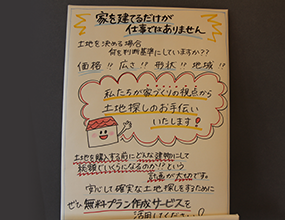 家を建てるだけが
仕事ではありません
土地を決める場合
何を判断基準にしていますか??
価格!! 広さ!! 形状!! 地域!!
私たちが家づくりの視点から
土地探しのお手伝い
いたします!
土地を購入する前にどんな建物にして
総額でいくらになるのか!?という
計画が大切です。
安心して確実な土地探しをするために
ぜひ無料プラン作成サービスを
活用してください!